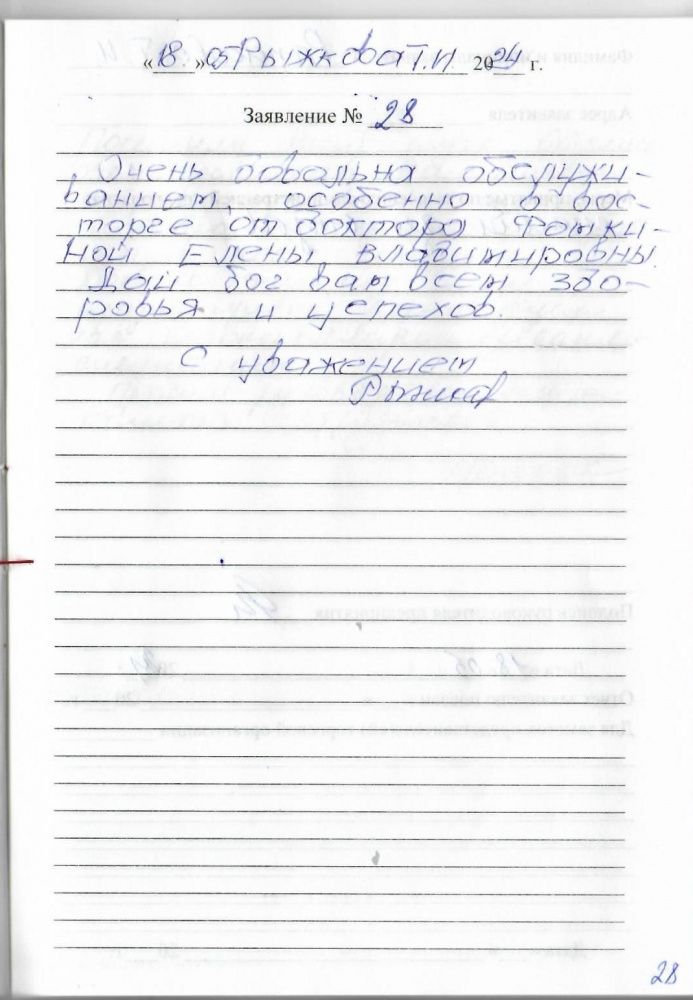 «18.» 05 Рыжкова Т.И. 2024 г.
Заявление № 28
Очень довольна обслужи-
ванием, особенно в вос-
торге от доктора Фомки-
ной Елены Владимировны.
Дай бог вам всем здо-
ровья и успехов.
С уважением
Рыжков
28